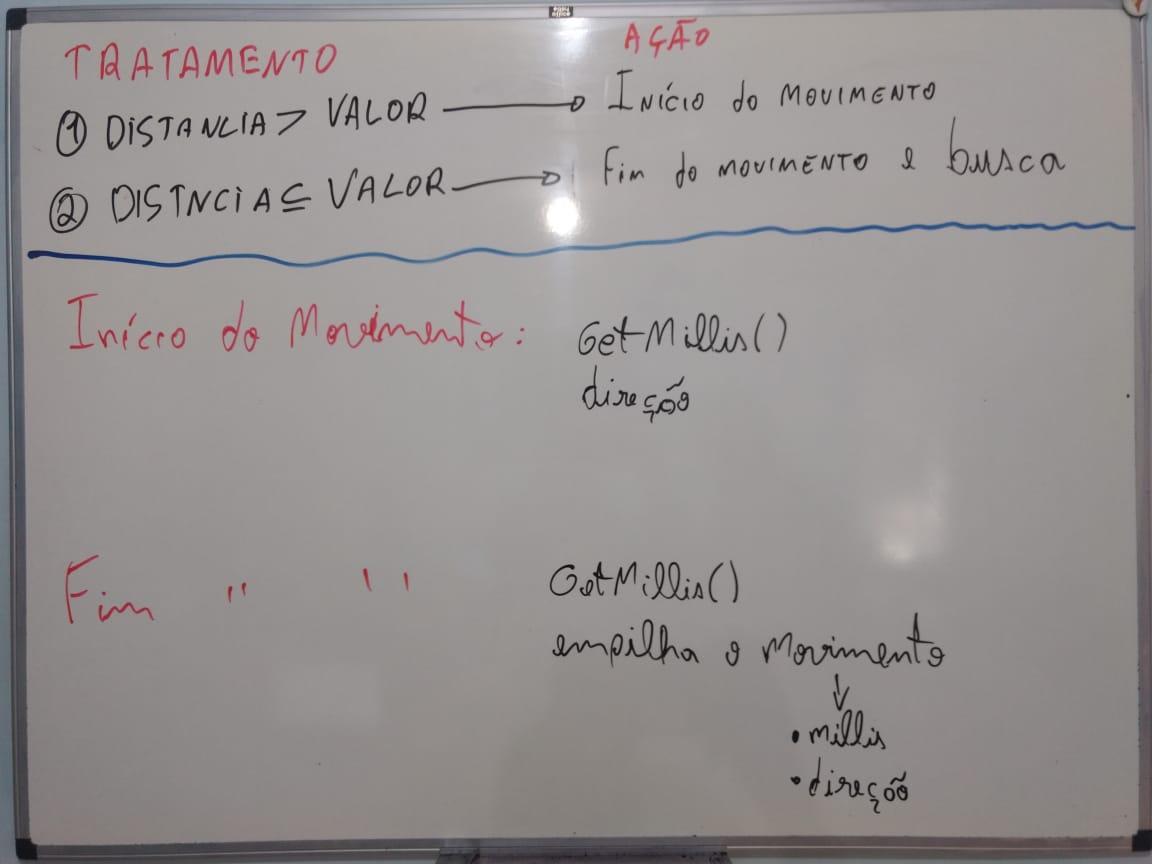 TRATAMENTO
AÇÃO
① DISTANCIA > VALOR → INÍCIO do MOVIMENTO
② DISTNCIA ≤ VALOR → Fim do MOVIMENTO e busca
Início do Movimento: GetMillis()
direção
Fim " " GetMillis()
empilha o Movimento
↓
• millis
• direção